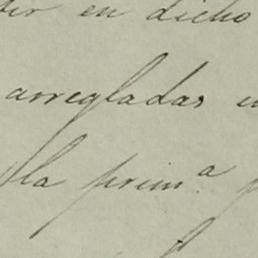 en dicho
arregladas
la prim.a